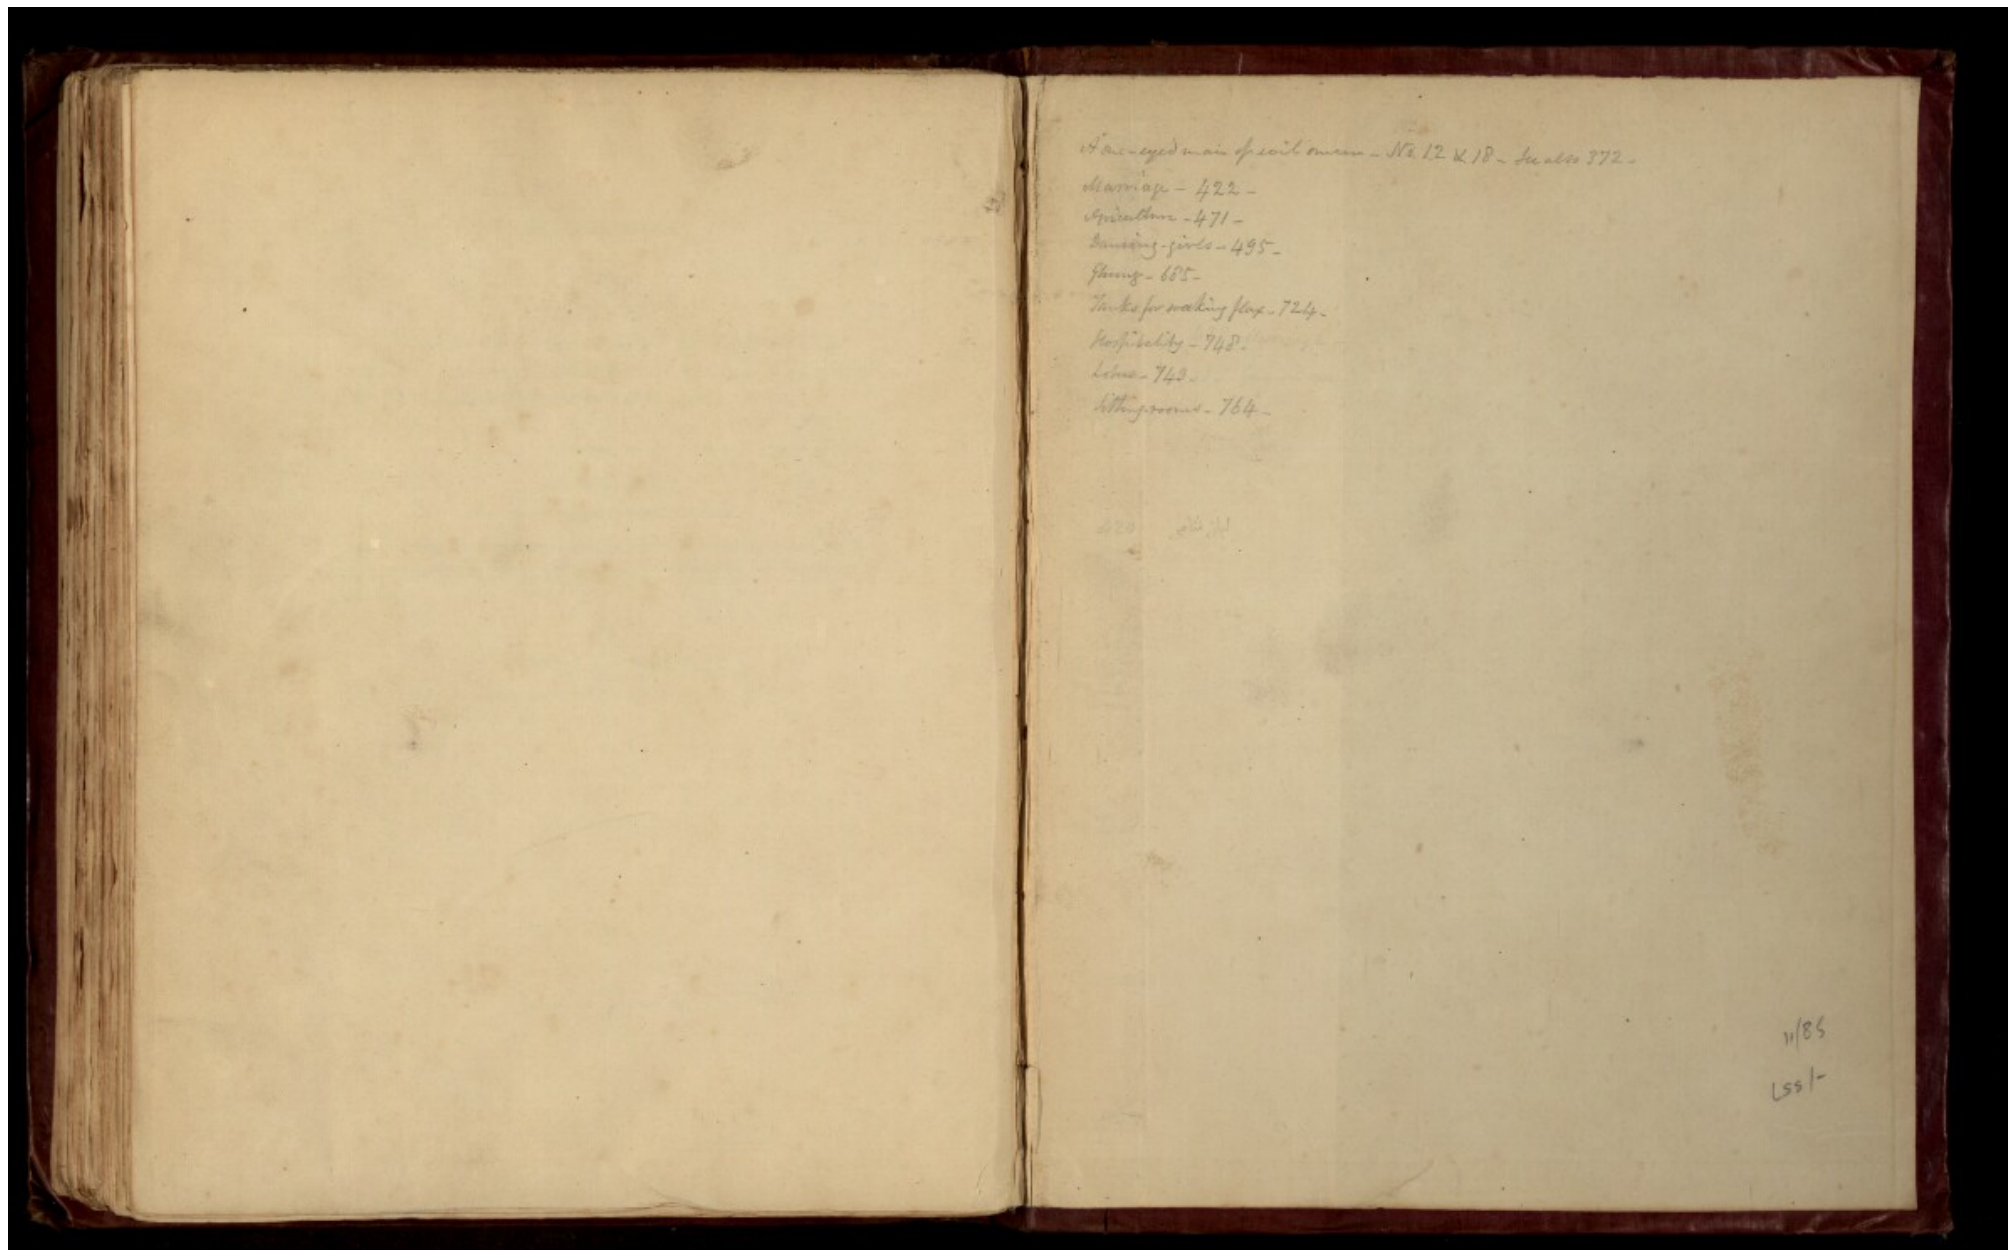 A one-eyed man of evil omen - No. 12 & 18 - See also 372 -
Marriage - 422 -
Apiculture - 471 -
Dancing-girls - 495 -
665 -
Tanks for soaking flax - 724 -
Hospitality - 748 -
Lotus - 749 -
Sitting rooms - 764 -
11/85